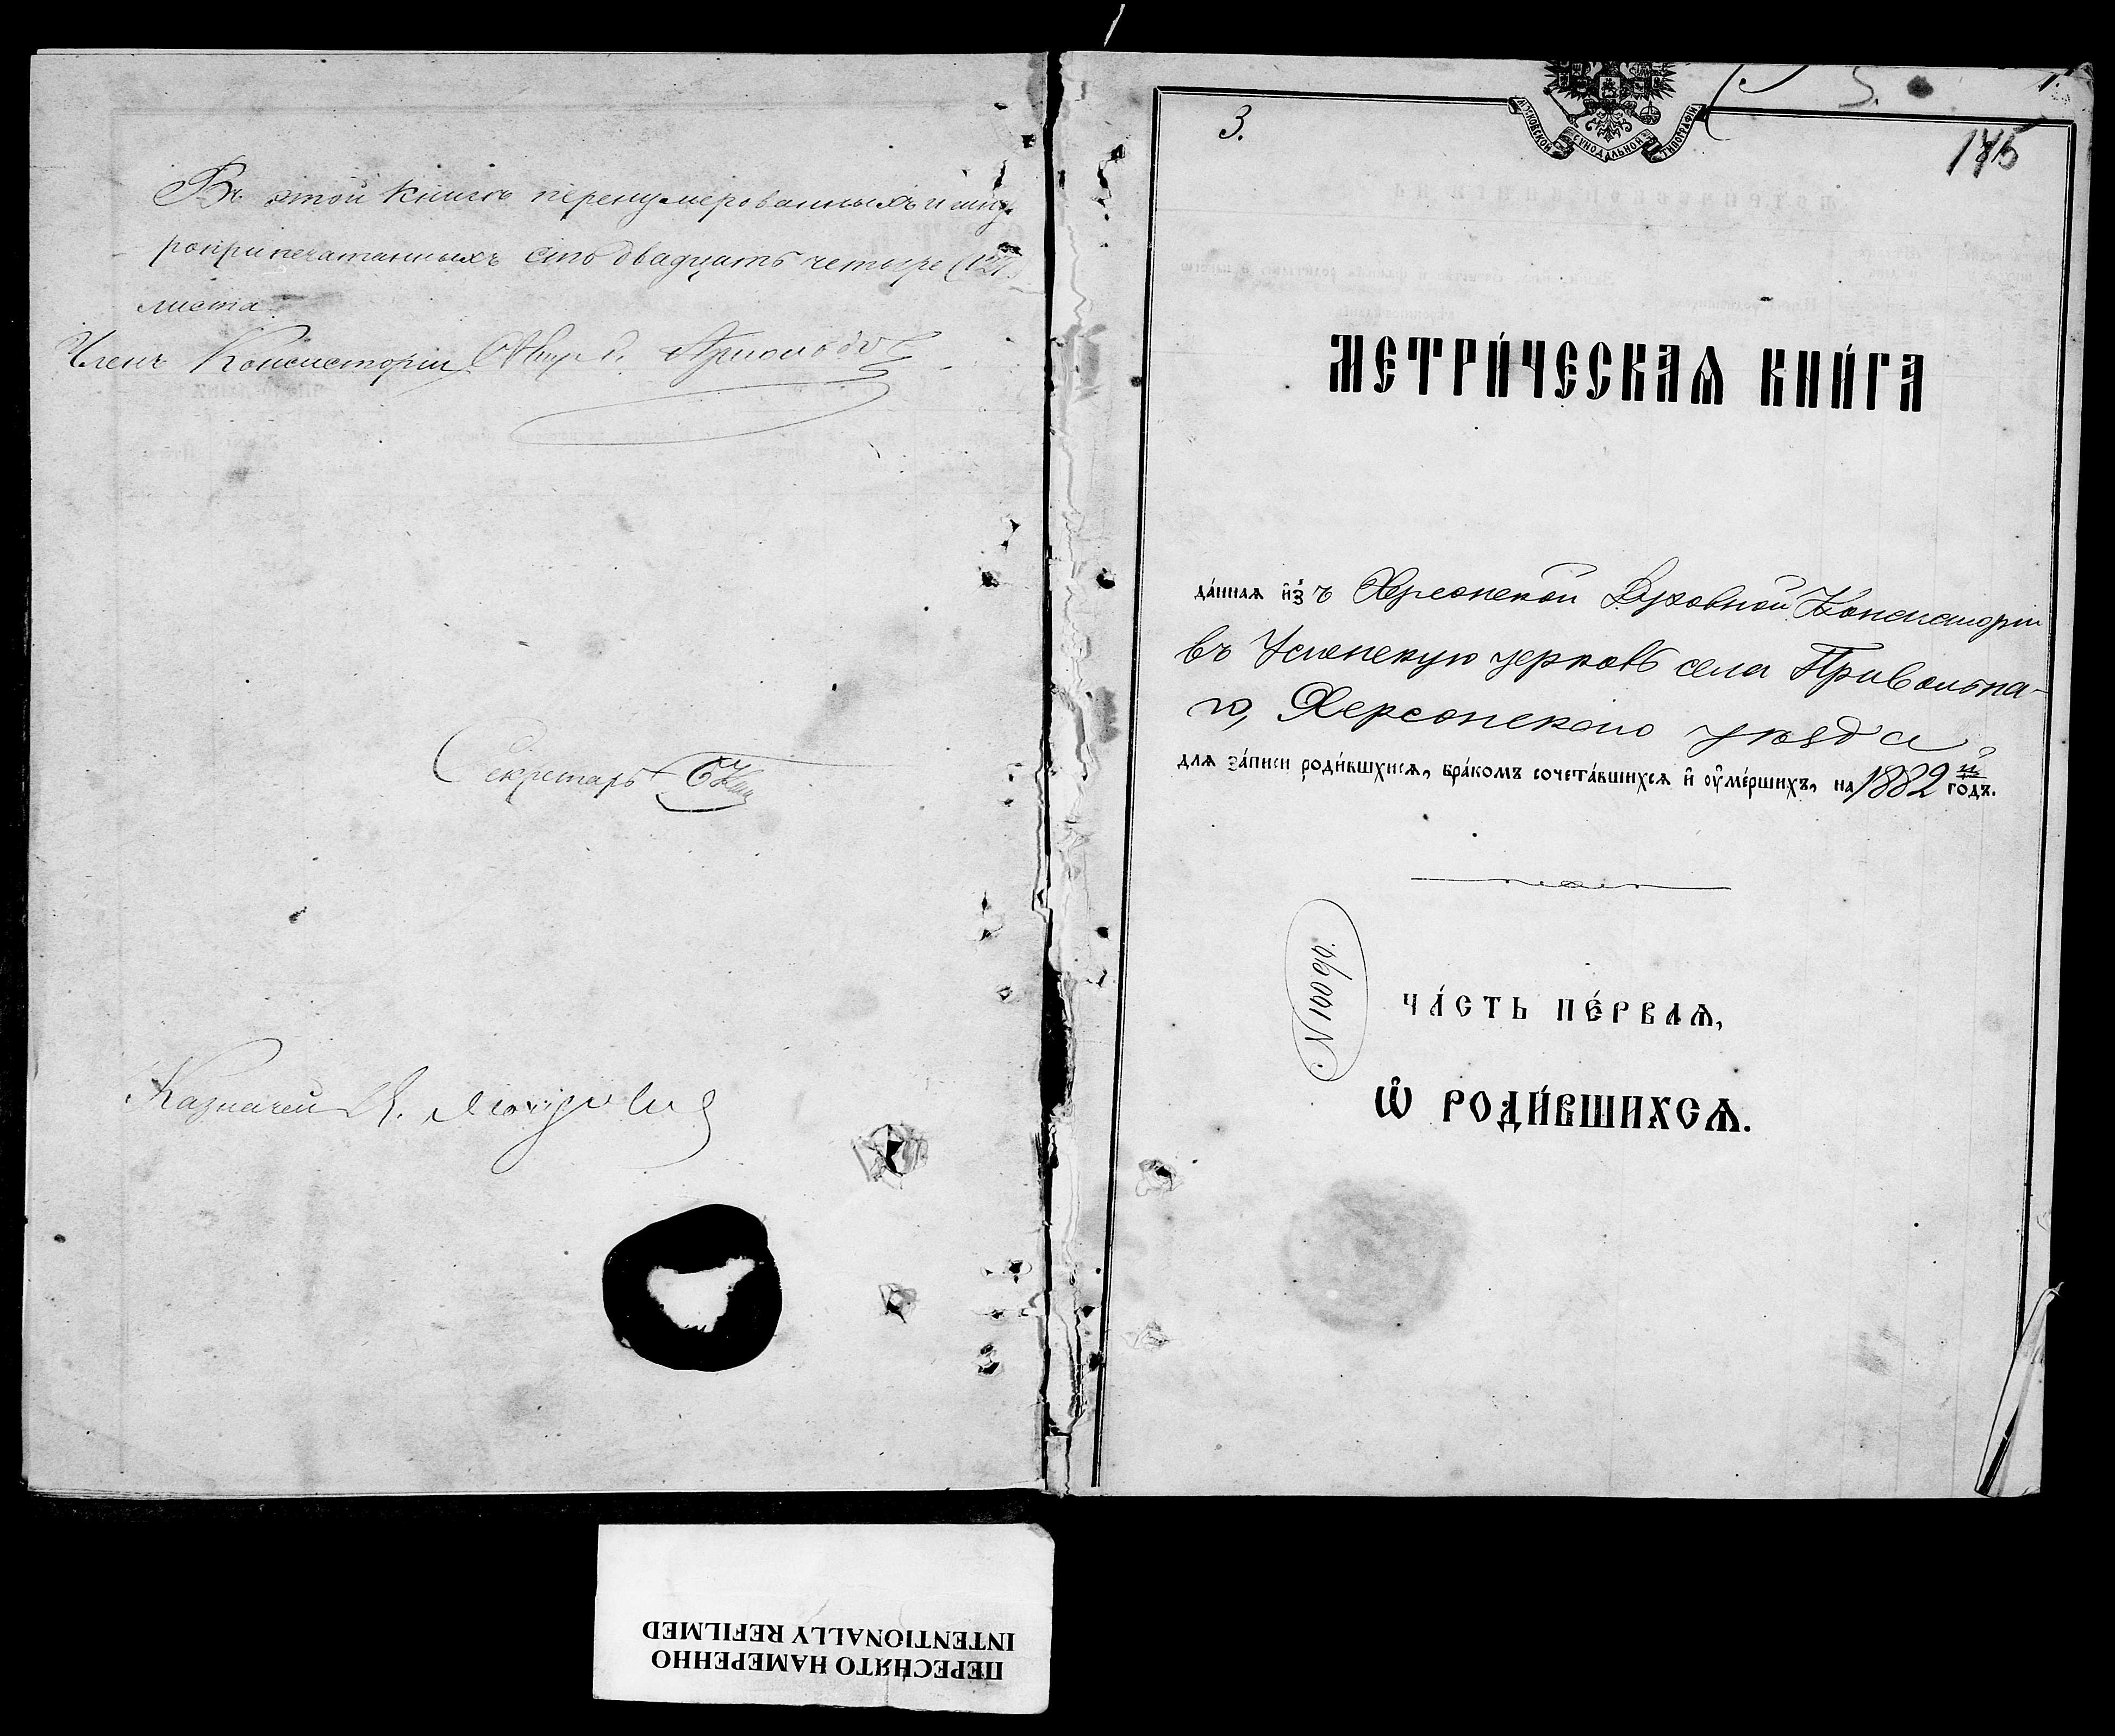 Въ этой книгѣ перенумерованныхъ и шну
роприпечатанныхъ сто двадцать четыре (124)
листа.
Членъ Консисторіи
Секретарь
Казначей
3.
МОСКОВСКОЙ СѴНОДАЛЬНОЙ ТИПОГРАФІИ
МЕТРИ́ЧЕСКАѦ КНИ́ГА
да́ннаѧ и҆з̾ ъ Херсонской Духовной Консисторіи
въ Успенскую церковь села Привольна-
го, Херсонскаго уѣзда,
для за́писи роди́вшхисѧ, бра́комъ сочета́вшихсѧ и҆ ѹ҆ме́ршихъ, на 1882 й годъ.
N 10096
ЧА́СТЬ ПЕ́РВАѦ,
Ѡ҆ РОДИ́ВШИХСѦ.
ПЕРЕСНЯТО НАМЕРЕННО
INTENTIONALLY REFILMED